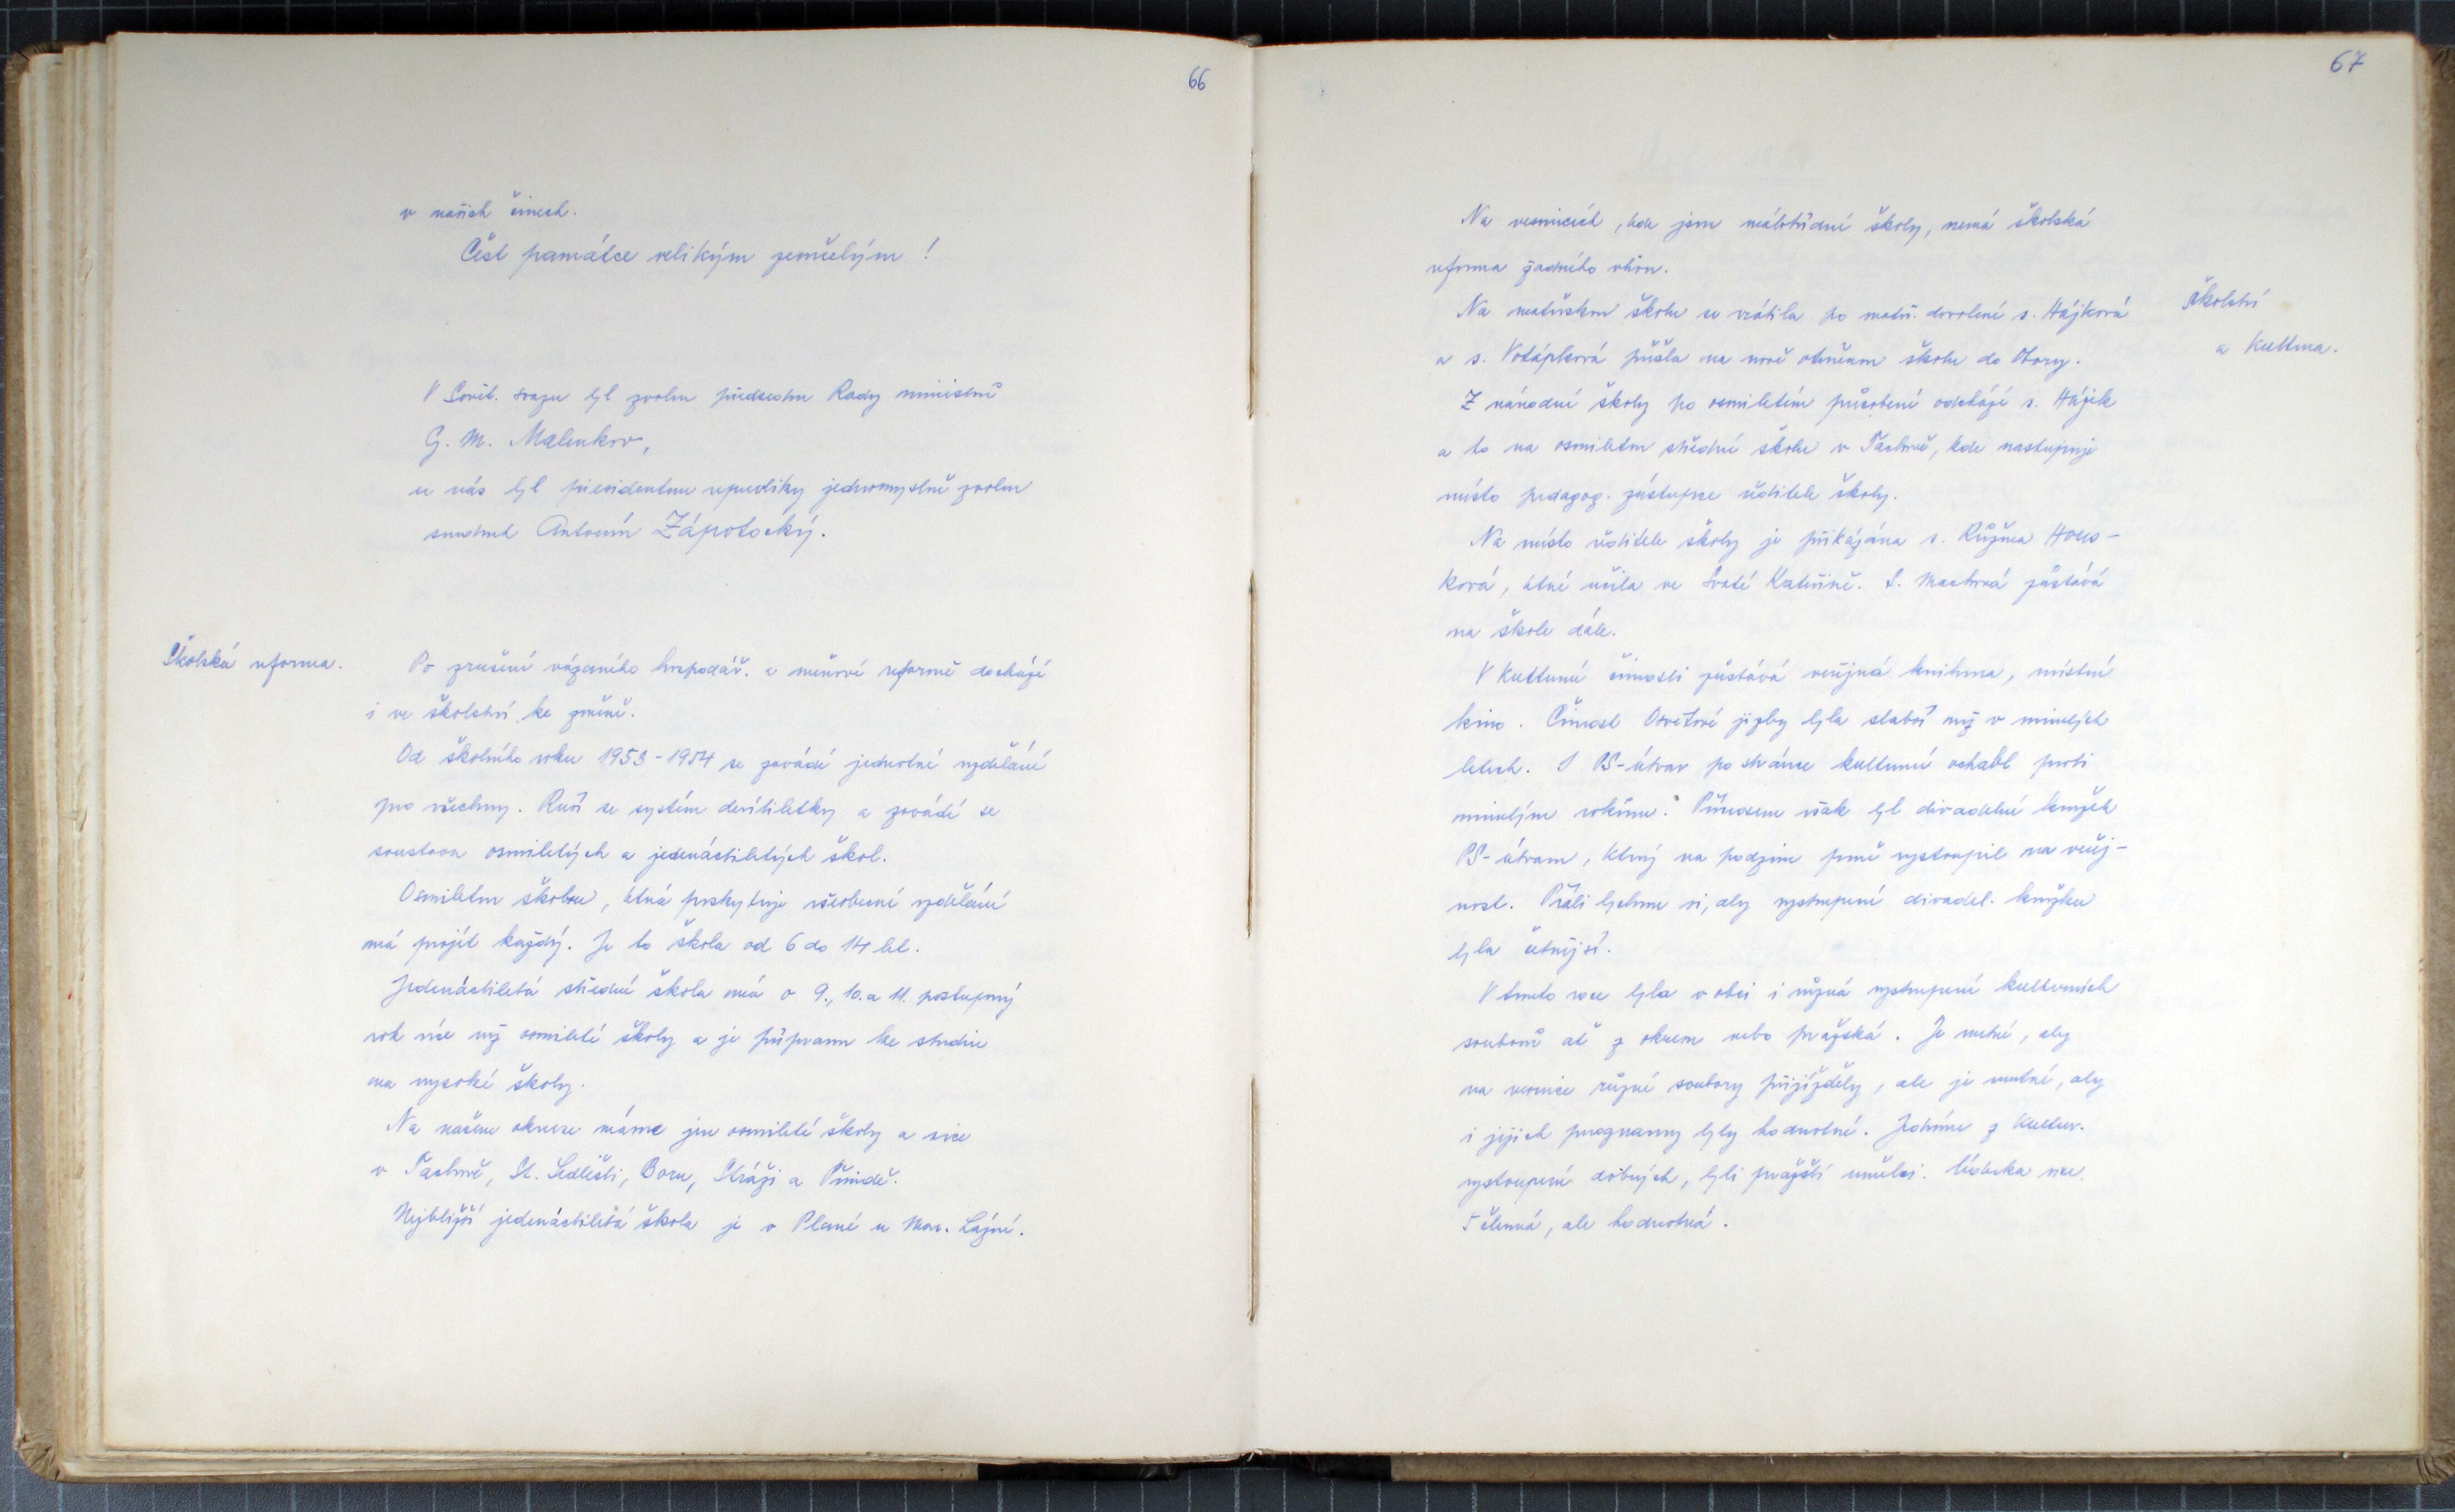 66
v našich činech.
Čest památce velikým zemřelým!
V Sovět. svazu byl zvolen předsedou Rady ministrů
G. M. Malenkov,
u nás byl presidentem republiky jednomyslně zvolen
soudruh Antonín Zápotocký.
Školská reforma.
Po zrušení vázaného hospodář. a měnové reformě dochází
i ve školství ke změně.
Od školního roku 1953-1954 se zavádí jednotné vzdělání
pro všechny. Ruší se systém devítiletky a zavádí se
soustava osmiletých a jedenáctiletých škol.
Osmiletou školou, která poskytuje všeobecné vzdělání
má projít každý. Je to škola od 6 do 14 let.
Jedenáctiletá střední škola má o 9., 10. a 11. postupný
rok více než osmileté školy a je průpravou ke studiu
na vysoké školy.
Na našem okrese máme jen osmileté školy a sice
v Tachově, St. Sedlišti, Boru, Stráži a Přimdě.
Nejbližší jedenáctiletá škola je v Plané u Mar. Lázní.
67
Na vesnicích, kde jsou málotřídní školy, nemá školská
reforma žádného vlivu.
Školství
a kultura.
Na mateřskou školu se vrátila po mateř. dovolené s. Hájková
a s. Votápková přišla na nově otevřenou školu do Obory.
Z národní školy po osmiletém působení odchází s. Hájek
a to na osmiletou střední školu v Tachově, kde nastupuje
místo pedagog. zástupce ředitele školy.
Na místo ředitele školy je přikázána s. Růžena Hous-
ková, která učila ve Svaté Kateřině. S. Machová zůstává
na škole dále.
V kulturní činnosti zůstává veřejná knihovna, místní
kino. Činnost Osvětové jizby byla slabší než v minulých
letech. I PS-útvar po stránce kulturní ochabl proti
minulým rokům. Přínosem však byl divadelní kroužek
PS-útvaru, který na podzim prvně vystoupil na veřej-
nost. Přáli bychom si, aby vystoupení divadel. kroužku
byla četnější.
V tomto roce byla v obci i různá vystoupení kulturních
souborů ať z okresu nebo pražská. Je nutné, aby
na vesnice různé soubory přijížděly, ale je nutné, aby
i jejich programy byly hodnotné. Jedněmi z kultur.
vystoupení dobrých, byli pražští umělci. Účast sice
5 členná, ale hodnotná.